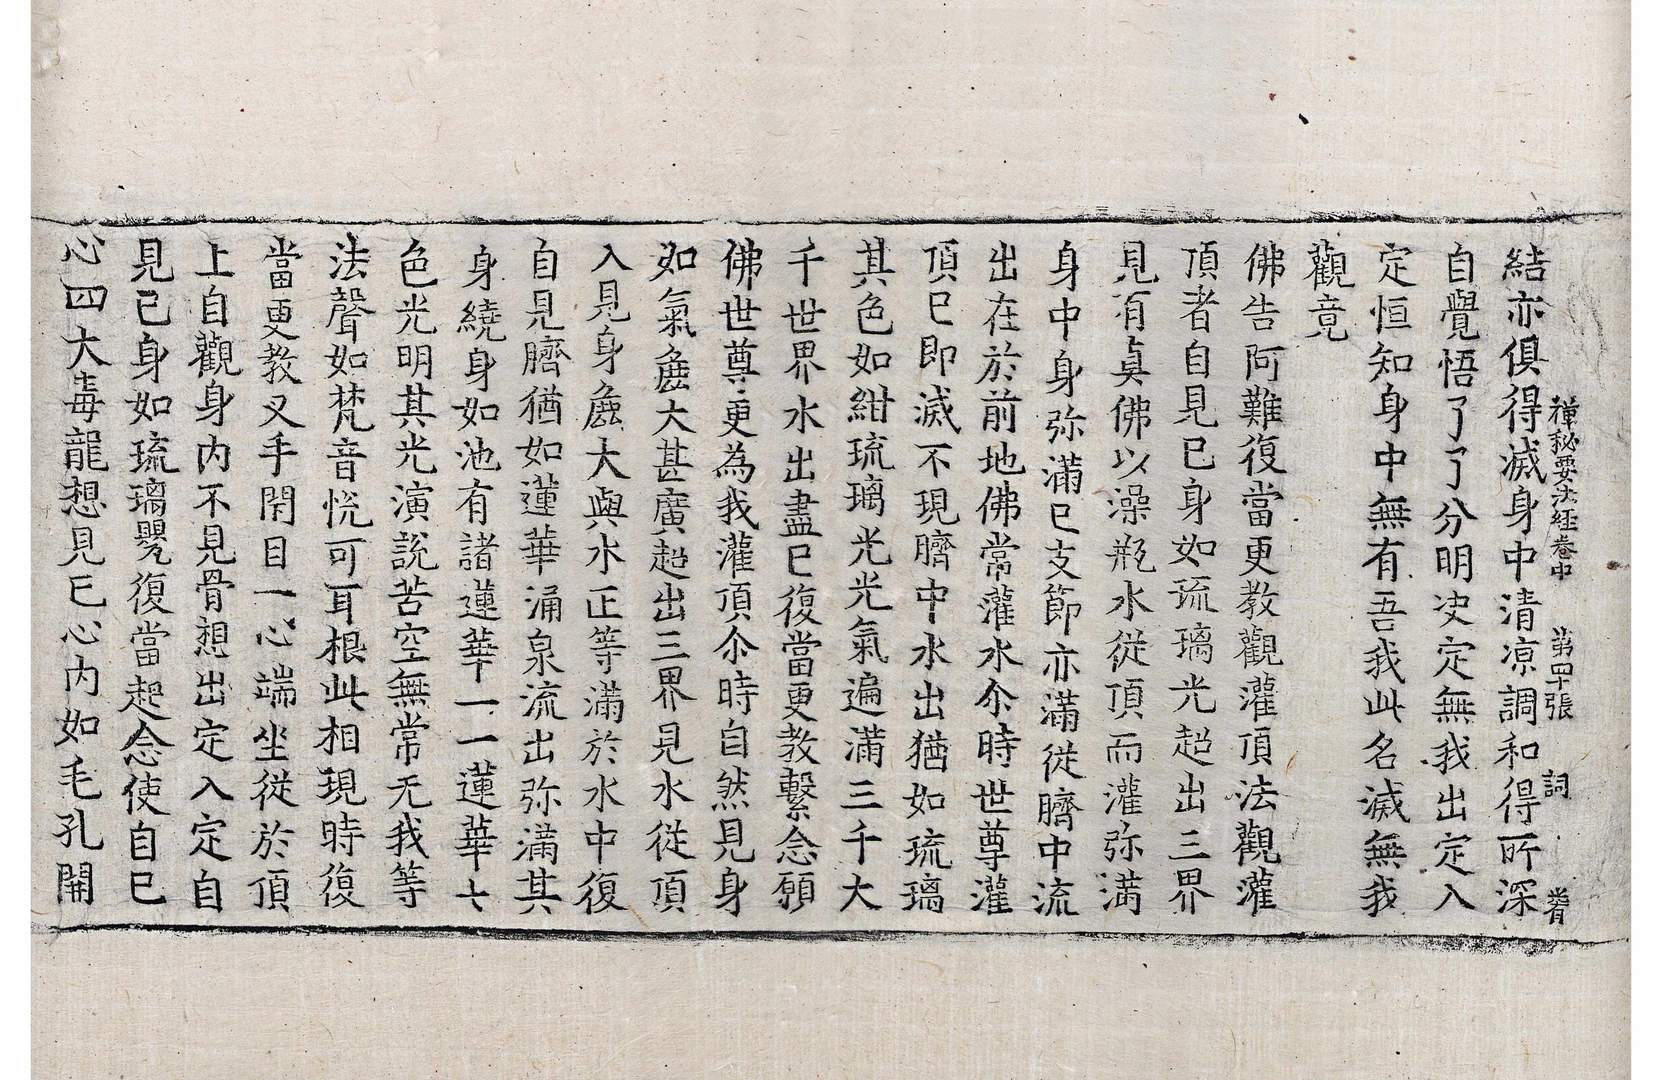 禪秘要法経卷中　第四十張　詞
結亦俱得滅身中清凉調和得所深
自覺悟了了分明决定無我出定入
定恒知身中無有吾我此名滅無我
觀竟
佛告阿難復當更教觀灌頂法觀灌
頂者自見已身如琉璃光超出三界
見有真佛以澡瓶水從頂而灌弥滿
身中身弥滿已支節亦滿從臍中流
出在於前地佛常灌水尒時世尊灌
頂已即滅不現臍中水出猶如琉璃
其色如紺琉璃光光氣遍滿三千大
千世界水出盡已復當更教繫念願
佛世尊更為我灌頂尒時自然見身
如氣麁大甚廣超出三界見水從頂
入見身麁大與水正等滿於水中復
自見臍猶如蓮華涌泉流出弥滿其
身繞身如池有諸蓮華一一蓮華七
色光明其光演說苦空無常无我等
法聲如梵音恱可耳根此相現時復
當更教叉手閇目一心端坐從於頂
上自觀身内不見骨想出定入定自
見已身如琉璃甖復當起念使自已
心四大毒龍想見已心内如毛孔開